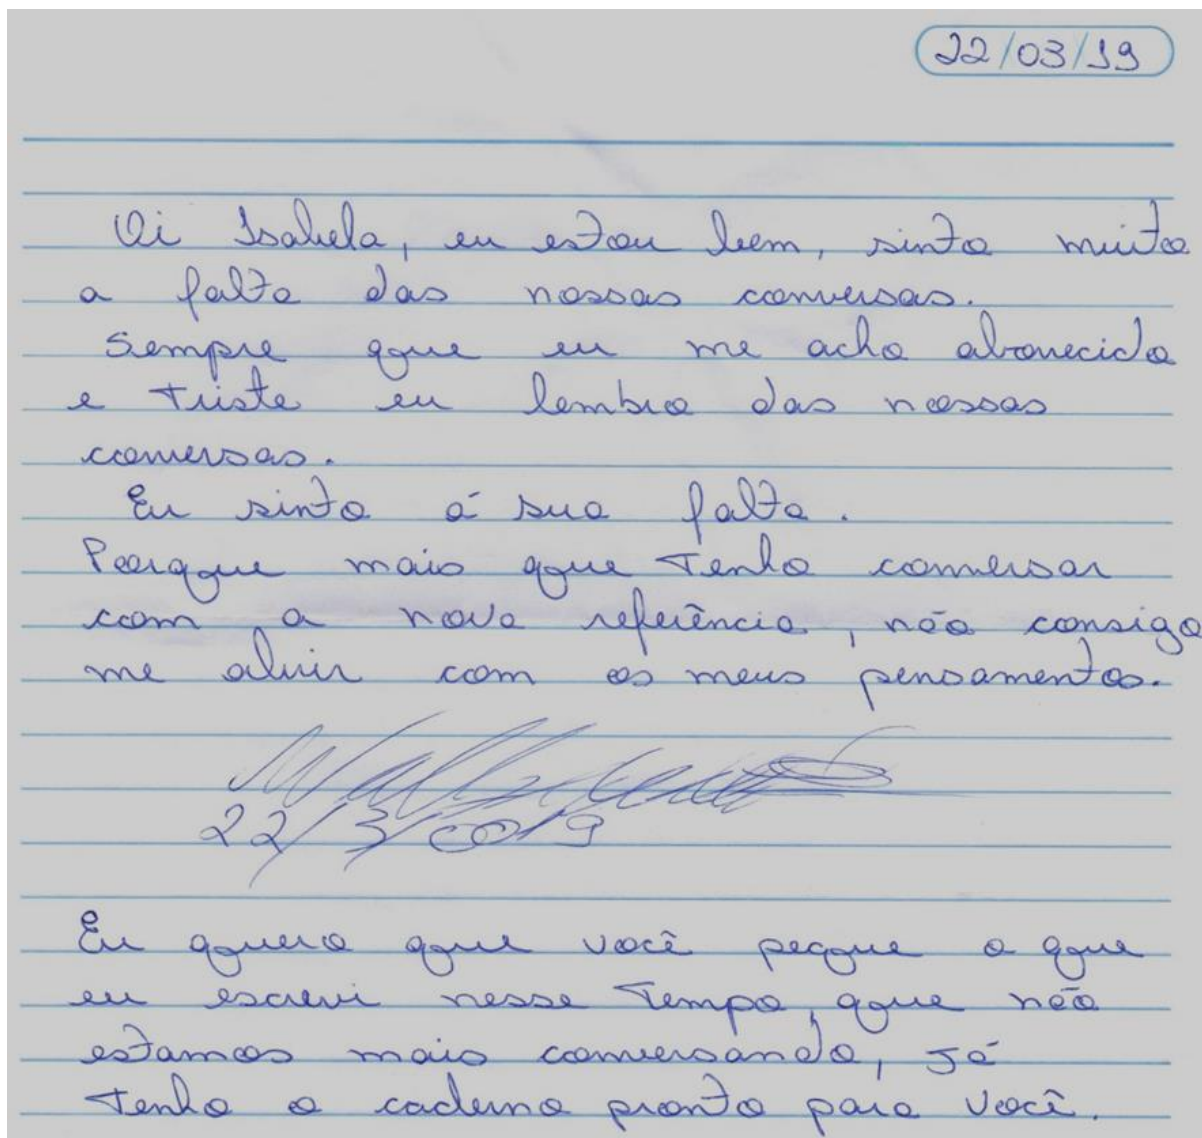 22/03/19
Oi Isabela, eu estou bem, sinto muito
a falta das nossas conversas.
Sempre que eu me acho aborrecido
e Triste eu lembro das nossas
conversas.
Eu sinto á sua falta.
Porque mais que Tenho conversar
com a nova referência, não consigo
me abrir com os meus pensamentos.
22/3/0019
Eu quero que você pegue o que
eu escrevi nesse Tempo, que não
estamos mais conversando, já
Tenho o caderno pronto para você.